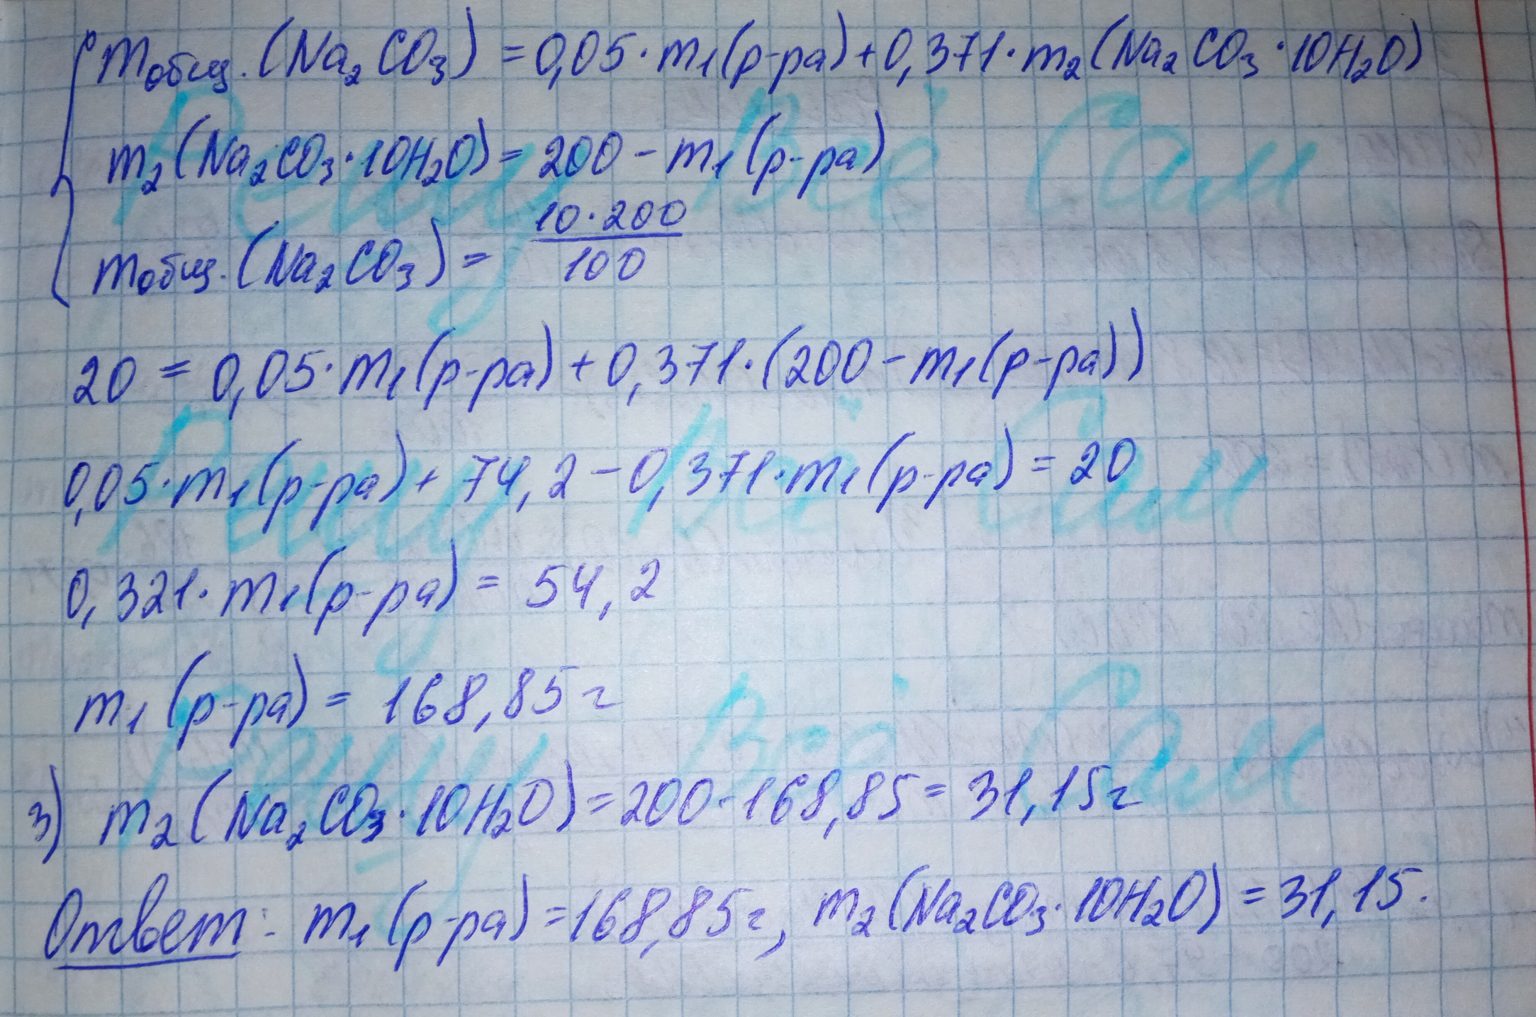 mобщ.(Na₂CO₃) = 0,05·m₁(р-ра)+0,371·m₂(Na₂CO₃·10H₂O)
m₂(Na₂CO₃·10H₂O) = 200 - m₁(р-ра)
mобщ.(Na₂CO₃) = 10·200/100
20 = 0,05·m₁(р-ра)+0,371·(200-m₁(р-ра))
0,05·m₁(р-ра)+74,2-0,371·m₁(р-ра)=20
0,321·m₁(р-ра)=54,2
m₁(р-ра)=168,85г
3) m₂(Na₂CO₃·10H₂O)=200-168,85=31,15г
Ответ: m₁(р-ра)=168,85г, m₂(Na₂CO₃·10H₂O)=31,15.
Решу Всё Сам
Решу Всё Сам
Решу Всё Сам